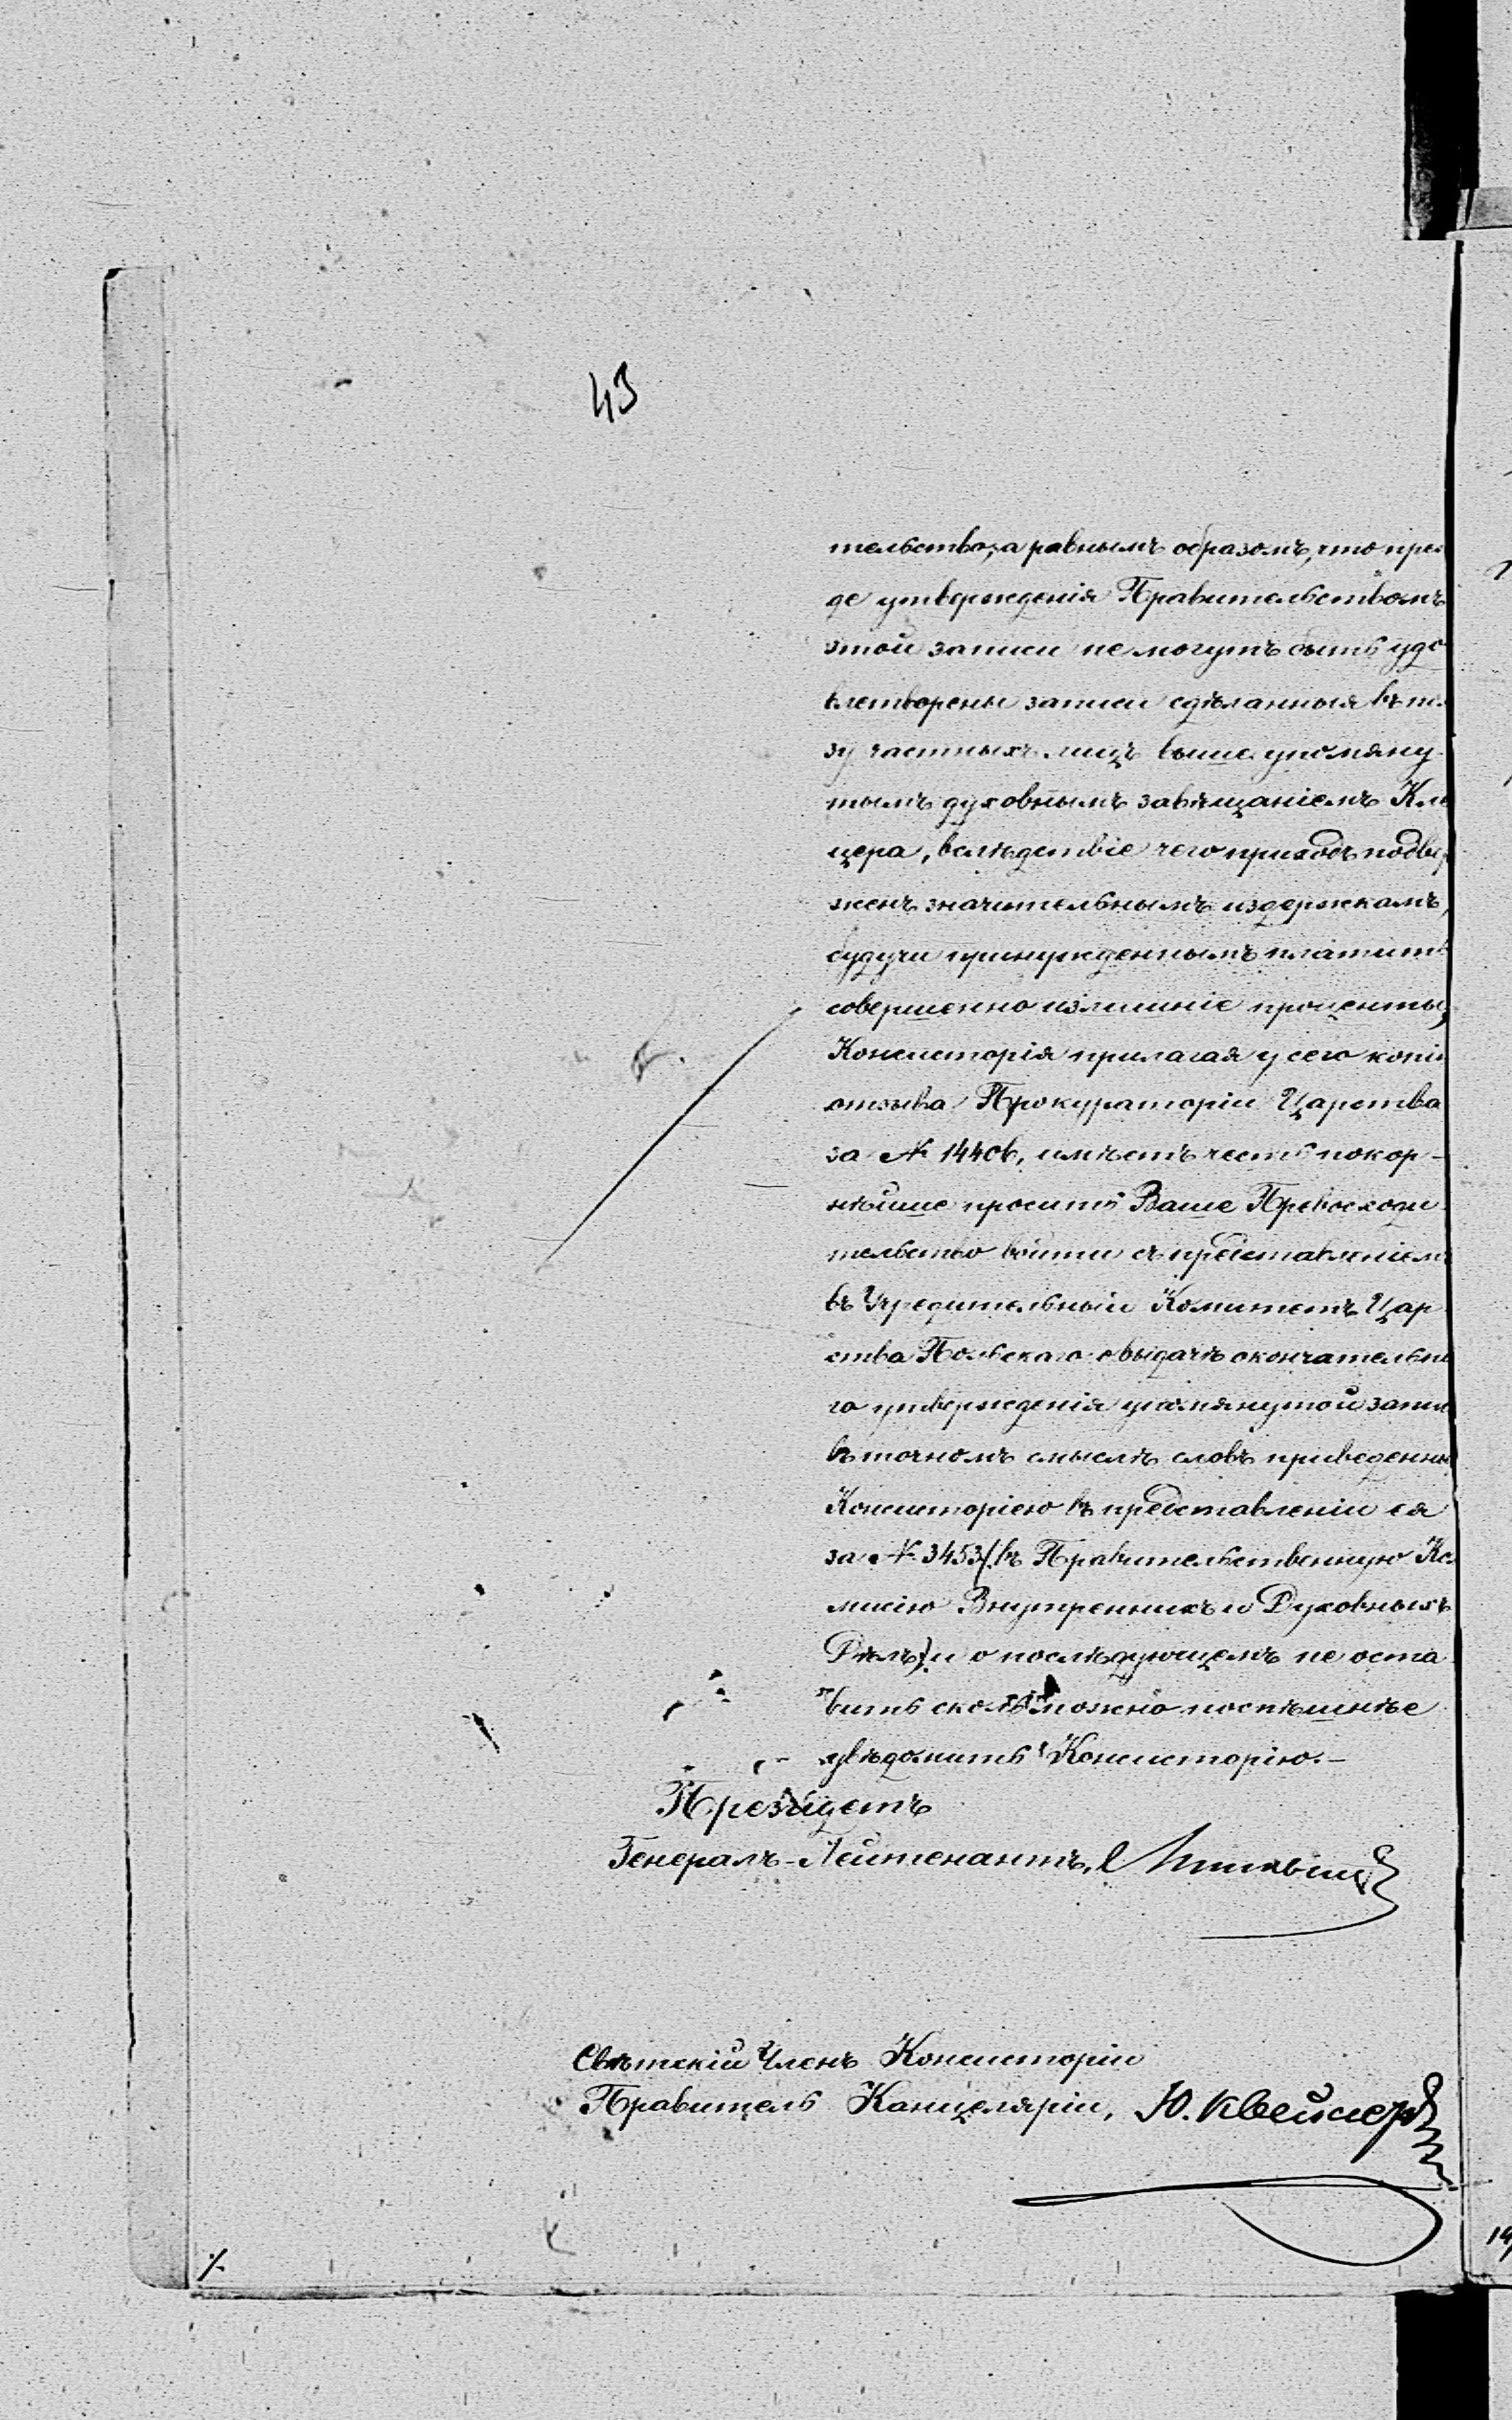 43
тельство, а равнымъ образомъ, что преж
де утвержденія Правительствомъ
этой записи не могутъ быть удо
влетворены записи сдѣланныя въ по
зу частныхъ лицъ выше упомяну
тымъ духовнымъ завѣщаніемъ Кле
цера, вслѣдствіе чего приходъ подвер
женъ значительнымъ издержкамъ,
будучи принужденнымъ платить
совершенно излишніе проценты,
Консисторія прилагая у сего копію
отзыва Прокураторіи Царства
за № 14406, имѣетъ честь покор-
нѣйше просить Ваше Превосходи
тельство войти съ представленіемъ
въ Учредительный Комитетъ Цар
ства Польскаго о выдачѣ окончательна
го утвержденія упомянутой запи
въ точномъ смыслѣ словъ приведенны
Консисторіею въ представленіи ея
за № 3453 (въ Правительственную Ко
мисію Внутреннихъ и Духовныхъ
Дѣлъ) и о послѣдующемъ не оста
вить сколь можно поспѣшнѣе
увѣдомить Консисторію.—
Президетъ
Генералъ-Лейтенантъ,
Свѣтскій Членъ Консисторіи
Правитель Канцеляріи, Ю.
%